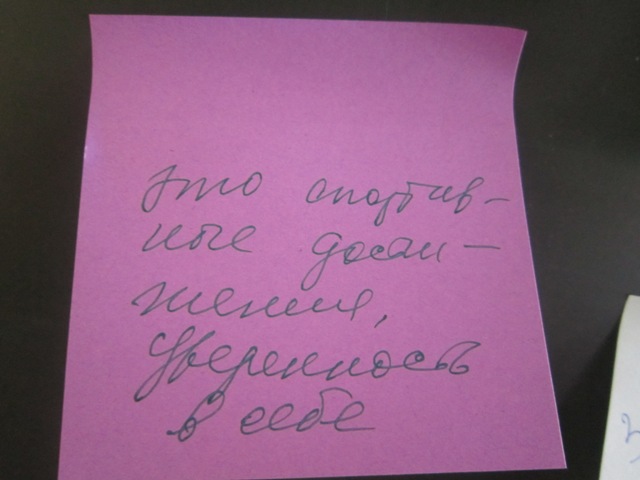 это спортив-
ные дости-
жения,
уверенность
в себе